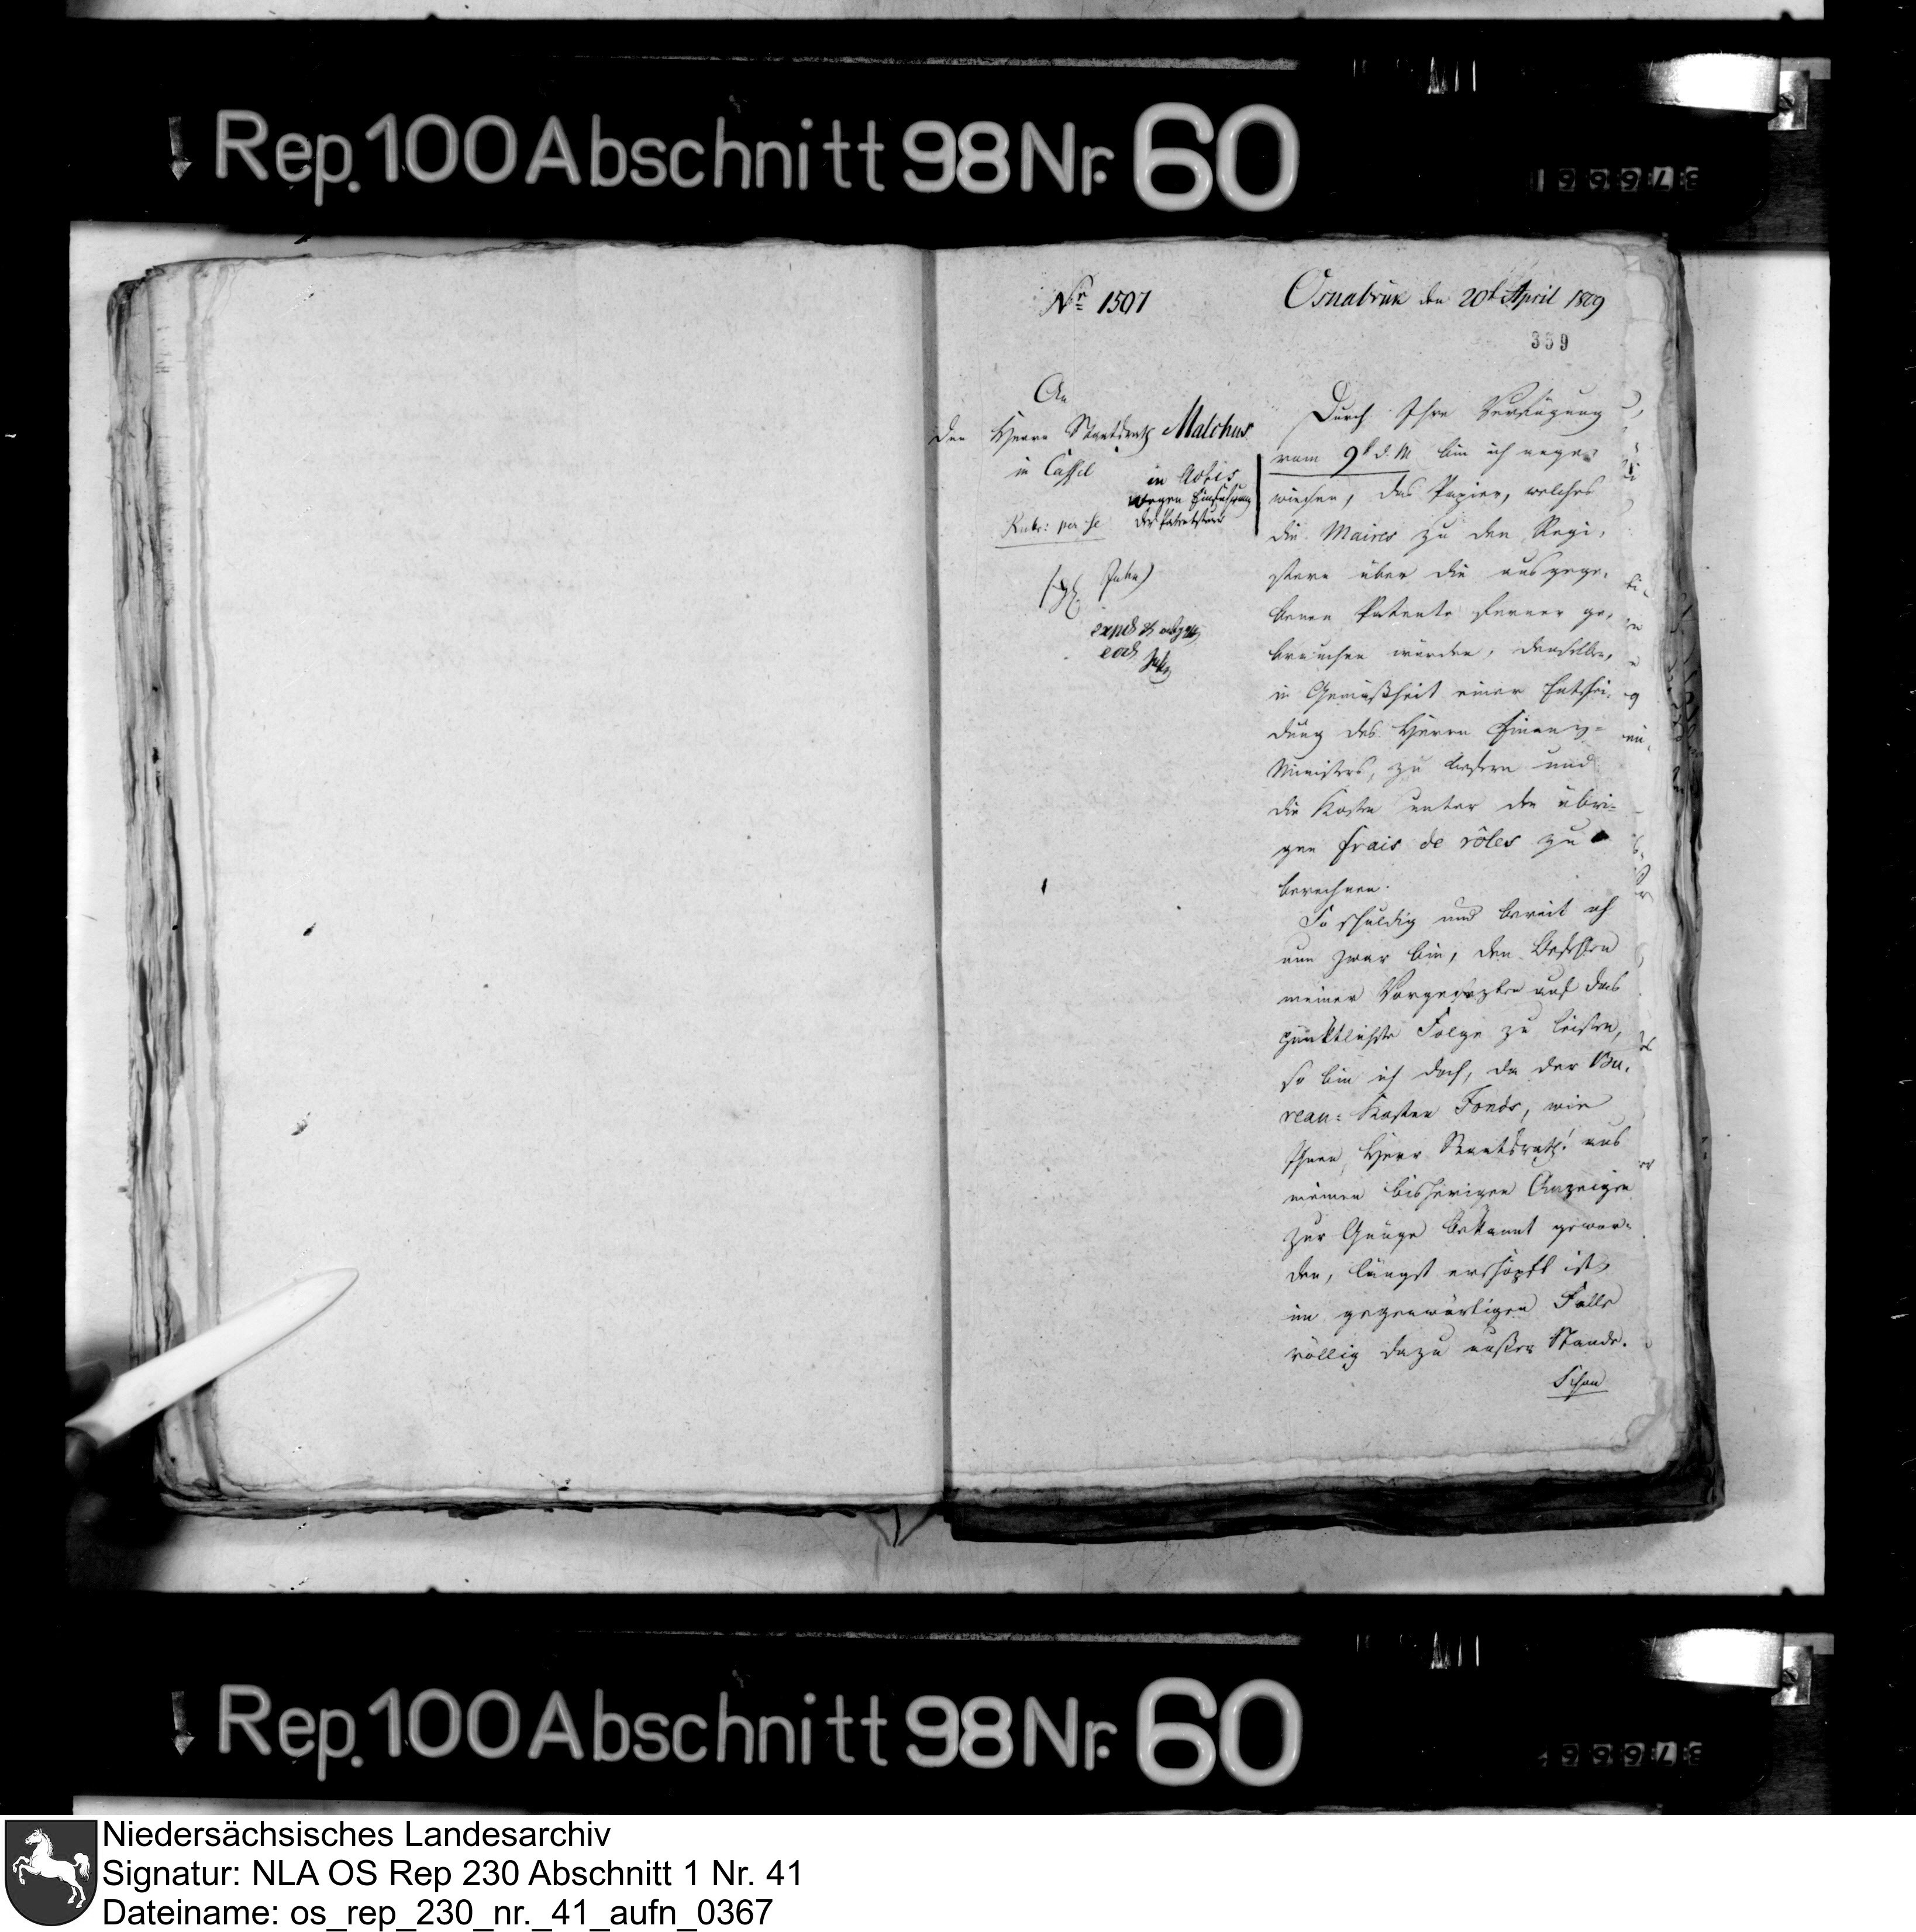 Rep. 100 Abschnitt 98 Nr. 60
Nr. 1507
Osnabrük den 20t April 1809
359
An
den Herrn Staatsrath Malchus
in Cassel
in Actis
wegen Einführung
der Patentsteuer
Rubr: per se
expd et abgg
eod
Durch Ihre Verfügung
vom 9t d. M. bin ich ange-
wiesen, das Papier, welches
die Maires zu den Regi-
stern über die ausgege-
benen Patente ferner ge-
brauchen würden, denselben,
in Gemäßheit einer Entschei-
dung des Herrn Finanz-
Ministers, zu liefern und
die Kosten unter den übri-
gen frais de rôles zu
berechnen.
So schuldig und bereit ich
nun zwar bin, den Befehlen
meiner Vorgesezten auf das
pünktlichste Folge zu leisten,
so bin ich doch, da der Bu-
reau-Kosten Fonds, wie
Ihnen, Herr Staatsrath! aus
meinen bisherigen Anzeigen
zur Genüge bekannt gewor-
den, längst erschöpft ist,
im gegenwärtigen Falle
völlig dazu außer Stande.
Schon
Rep. 100 Abschnitt 98 Nr. 60
Niedersächsisches Landesarchiv
Signatur: NLA OS Rep 230 Abschnitt 1 Nr. 41
Dateiname: os_rep_230_nr._41_aufn_0367